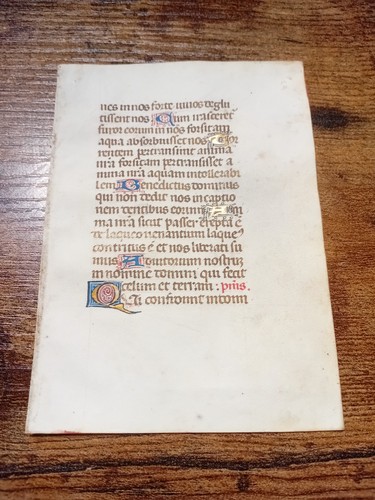 nes in nos forte vivos deglu
tissent nos Cum irasceret
furor eorum in nos forsitam
aqua absorbuisset nos Tor
rentem pertransivit anima
nra forsitam pertransisset a
nima nra aquam intollerabi
lem Benedictus dominus
qui non dedit nos in captio
nem dentibus eorum Ani
ma nra sicut passer erepta ē
de laqueo venantium laque9
contritus ē et nos liberati su
mus Adiutorium nostrum
in nomine domini qui fecit
celum et terram : p̄us .
Qui confidunt in domi